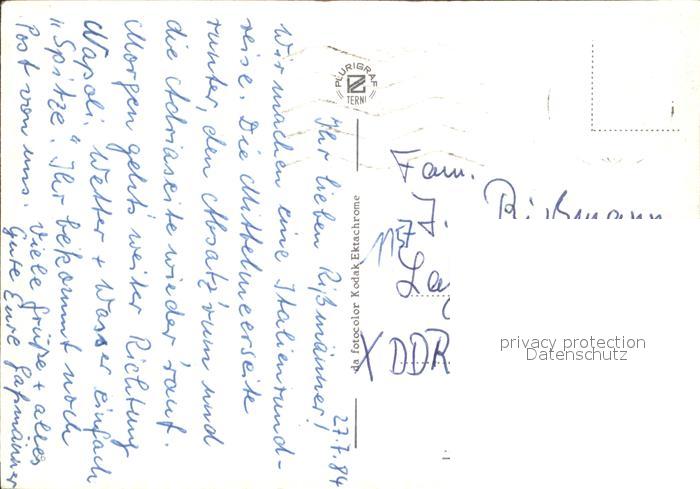 27.7.84
Ihr lieben Rißmänner!
Wir machen eine Italienrund-
reise. Die Mittelmeerseite
runter, den Absatz rum und
die Adriaseite wieder rauf.
Morgen gehts weiter Richtung
Napoli. Wetter + Wasser einfach
"Spitze". Ihr bekommt noch
Post von uns. Viele Grüße + alles
Gute Eure Gaßmänner
PLURIGRAF
TERNI
da fotocolor Kodak Ektachrome
Fam.
J. Rißmann
La
X DDR
privacy protection
Datenschutz